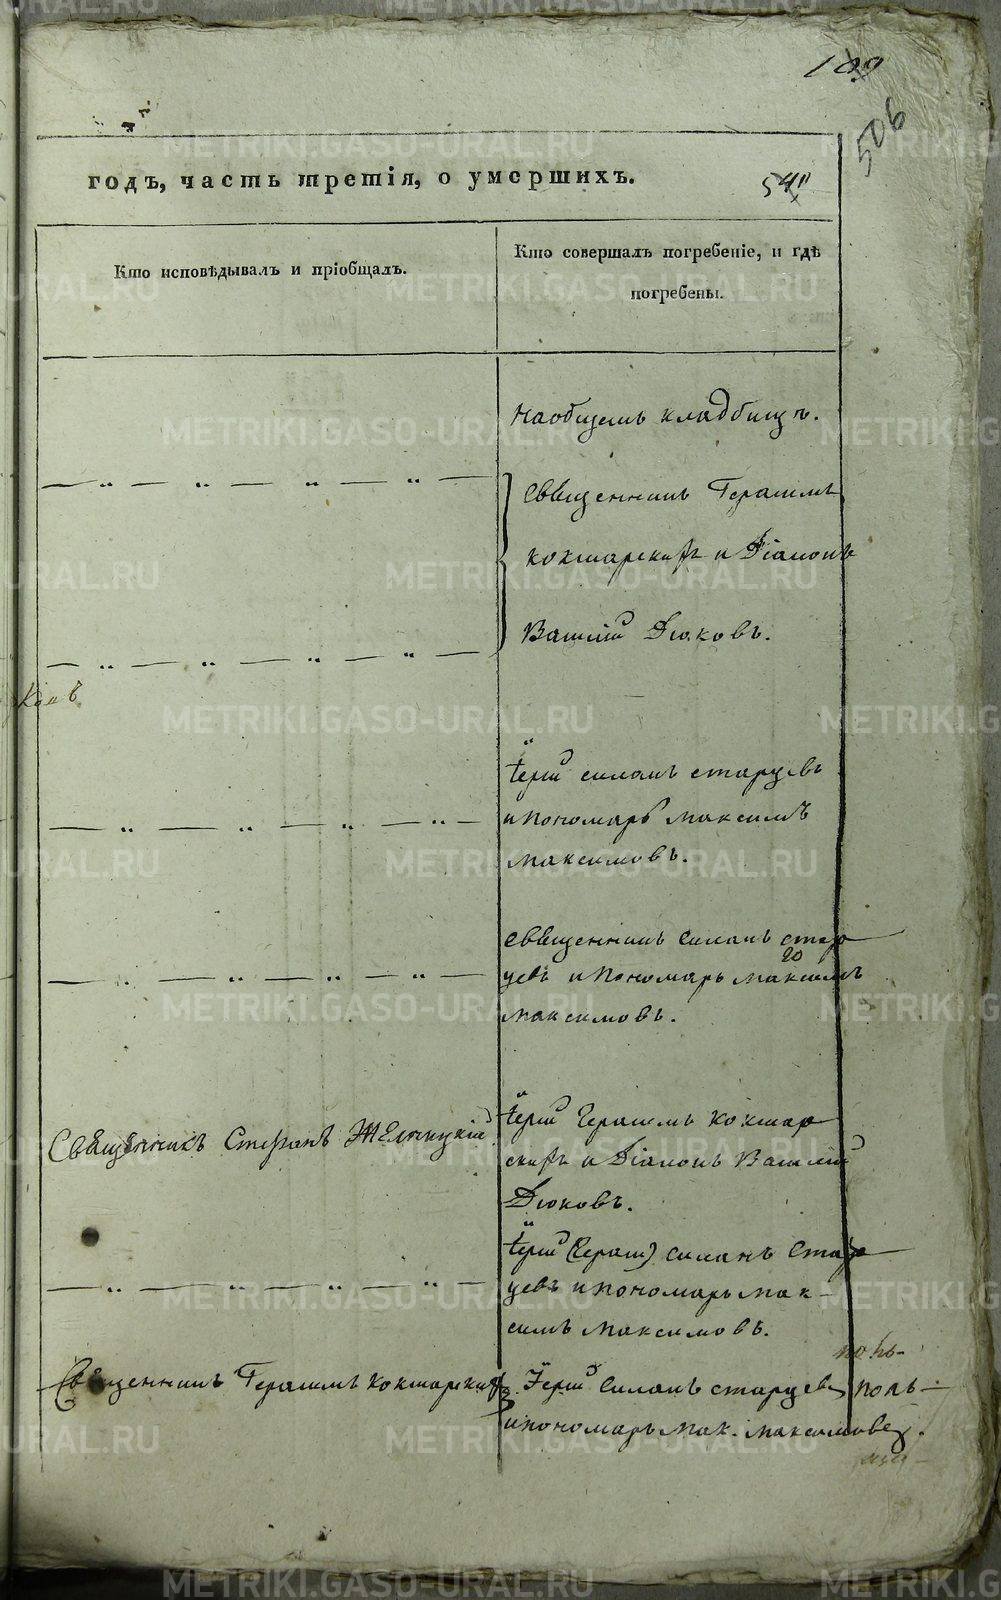 506
годъ, часть третія, о умершихъ.
Кто исповѣдывалъ и пріобщалъ.
Кто совершалъ погребеніе, и гдѣ
погребены.
на общемъ кладбищѣ.
Священникъ Герасимъ
Кокшарскій и Діаконъ
Василій Дюковъ.
Іерей Силланъ Старцевъ
и пономарь Максимъ
Максимовъ.
Священникъ Силланъ Стар
цевъ и пономарь Максимъ
Максимовъ.
Священникъ Стефанъ Желницкій
Іерей Герасимъ Кокшар
скій и Діаконъ Василій
Дюковъ.
Іерей (Герасі) Силланъ Стар
цевъ и пономарь Мак-
симъ Максимовъ.
Священникъ Герасимъ Кокшарскій
Іерей Силланъ Старцевъ
и пономарь Мак. Максимовъ.
METRIKI.GASO-URAL.RU